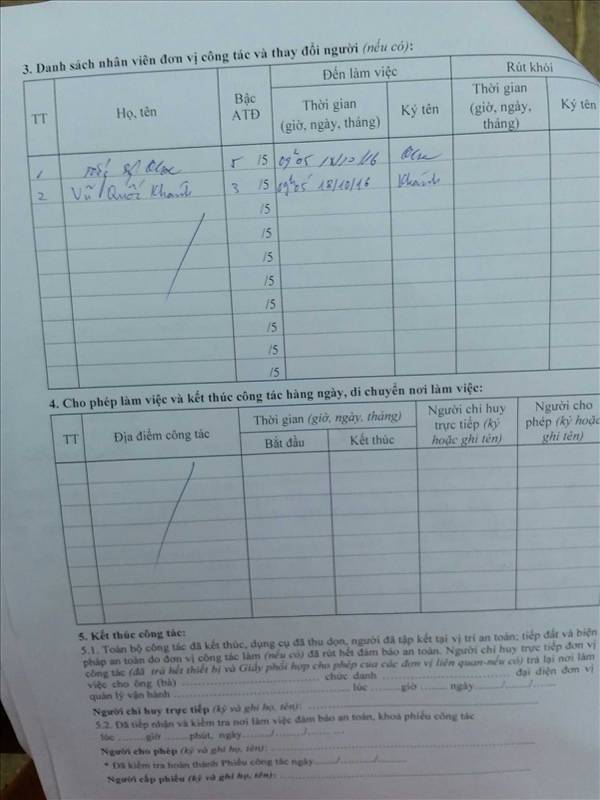 3. Danh sách nhân viên đơn vị công tác và thay đổi người (nếu có):
TT Họ, tên Bậc ATĐ Đến làm việc Rút khỏi
Thời gian (giờ, ngày, tháng) Ký tên Thời gian (giờ, ngày, tháng) Ký tên
1 5 /5 09h05 18/10/16
2 Vũ Quốc Khánh 3 /5 09h05 18/10/16 Khánh
/5
/5
/5
/5
/5
/5
/5
/5
4. Cho phép làm việc và kết thúc công tác hàng ngày, di chuyển nơi làm việc:
TT Địa điểm công tác Thời gian (giờ, ngày, tháng) Người chỉ huy trực tiếp (ký hoặc ghi tên) Người cho phép (ký hoặc ghi tên)
Bắt đầu Kết thúc
5. Kết thúc công tác:
5.1. Toàn bộ công tác đã kết thúc, dụng cụ đã thu dọn, người đã tập kết tại vị trí an toàn; tiếp đất và biện
pháp an toàn do đơn vị công tác làm (nếu có) đã rút hết đảm bảo an toàn. Người chỉ huy trực tiếp đơn vị
công tác (đã trả hết thiết bị và Giấy phối hợp cho phép của các đơn vị liên quan-nếu có) trả lại nơi làm
việc cho ông (bà) ........ chức danh ........ đại diện đơn vị
quản lý vận hành ........ lúc ...... giờ ...... ngày ....../....../......
Người chỉ huy trực tiếp (ký và ghi họ, tên): ........
5.2. Đã tiếp nhận và kiểm tra nơi làm việc đảm bảo an toàn, khoá phiếu công tác
lúc ...... giờ ...... phút, ngày ....../....../......
Người cho phép (ký và ghi họ, tên): ........
* Đã kiểm tra hoàn thành Phiếu công tác ngày ....../....../......
Người cấp phiếu (ký và ghi họ, tên): ........